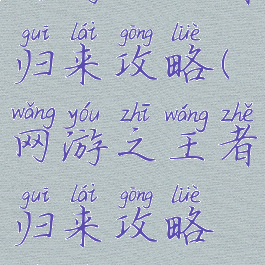 guī lái gōng lüè
归来攻略(
wǎng yóu zhī wáng zhě
网游之王者
guī lái gōng lüè
归来攻略